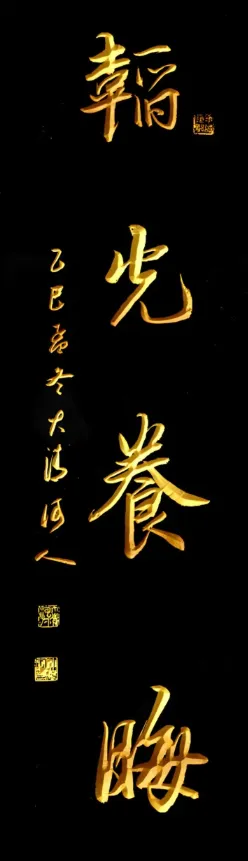 韜光養晦
乙巳孟冬大清河人